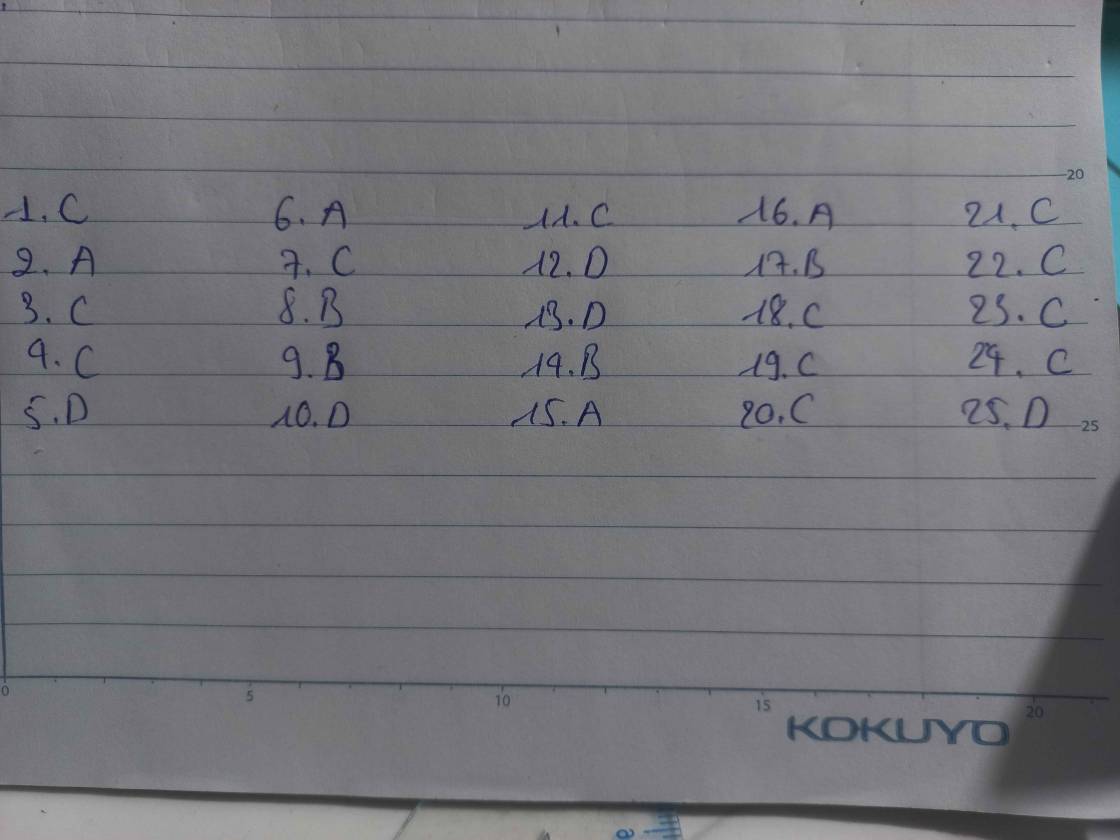 20
1. C 6. A 11. C 16. A 21. C
2. A 7. C 12. D 17. B 22. C
3. C 8. B 13. D 18. C 23. C
4. C 9. B 14. B 19. C 24. C
5. D 10. D 15. A 20. C 25. D
25
0 5 10 15 20
KOKUYO